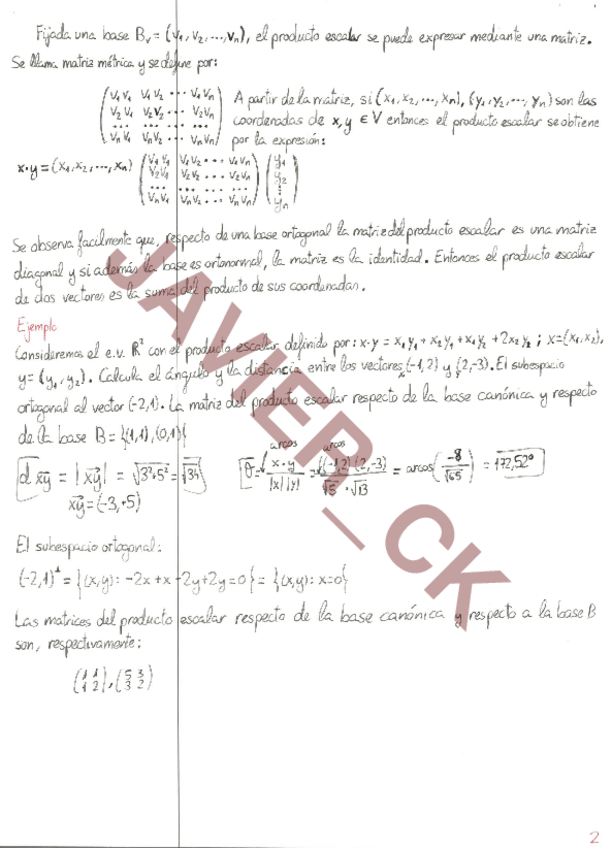 Fijada una base Bᵥ = (v₁, v₂, ..., vₙ), el producto escalar se puede expresar mediante una matriz.
Se llama matriz métrica y se define por:
(v₁v₁ v₁v₂ ... v₁vₙ
v₂v₁ v₂v₂ ... v₂vₙ
... ... ...
vₙv₁ vₙv₂ ... vₙvₙ)
A partir de la matriz, si (x₁, x₂, ..., xₙ), (y₁, y₂, ..., yₙ) son las
coordenadas de x, y ∈ V entonces el producto escalar se obtiene
por la expresión:
x·y = (x₁, x₂, ..., xₙ) (v₁v₁ v₁v₂ ... v₁vₙ
v₂v₁ v₂v₂ ... v₂vₙ
... ... ...
vₙv₁ vₙv₂ ... vₙvₙ) (y₁
y₂
⋮
yₙ)
Se observa facilmente que, respecto de una base ortogonal la matriz del producto escalar es una matriz
diagonal y si además la base es ortonormal, la matriz es la identidad. Entonces el producto escalar
de dos vectores es la suma del producto de sus coordenadas.
Ejemplo
Consideremos el e.v. ℝ² con el producto escalar definido por: x·y = x₁y₁ + x₂y₁ + x₁y₂ + 2x₂y₂ ; x=(x₁, x₂),
y = (y₁, y₂). Calcula el ángulo y la distancia entre los vectores (-1,2) y (2,-3). El subespacio
ortogonal al vector (-2,1). La matriz del producto escalar respecto de la base canónica y respecto
de la base B = {(1,1), (0,1)}
d xy = |xy| = √3²+5² = √34
xy = (-3,+5)
θ = arcos x·y / |x||y| = arcos ((-1,2)(2,-3)) / √5·√13 = arcos (-8/√65) = 172,52°
El subespacio ortogonal:
(-2,1)⊥ = {(x,y): -2x + x - 2y + 2y = 0} = {(x,y): x=0}
Las matrices del producto escalar respecto de la base canónica y respecto a la base B
son, respectivamente:
(1 1
1 2), (5 3
3 2)
JAVIER_CK
2